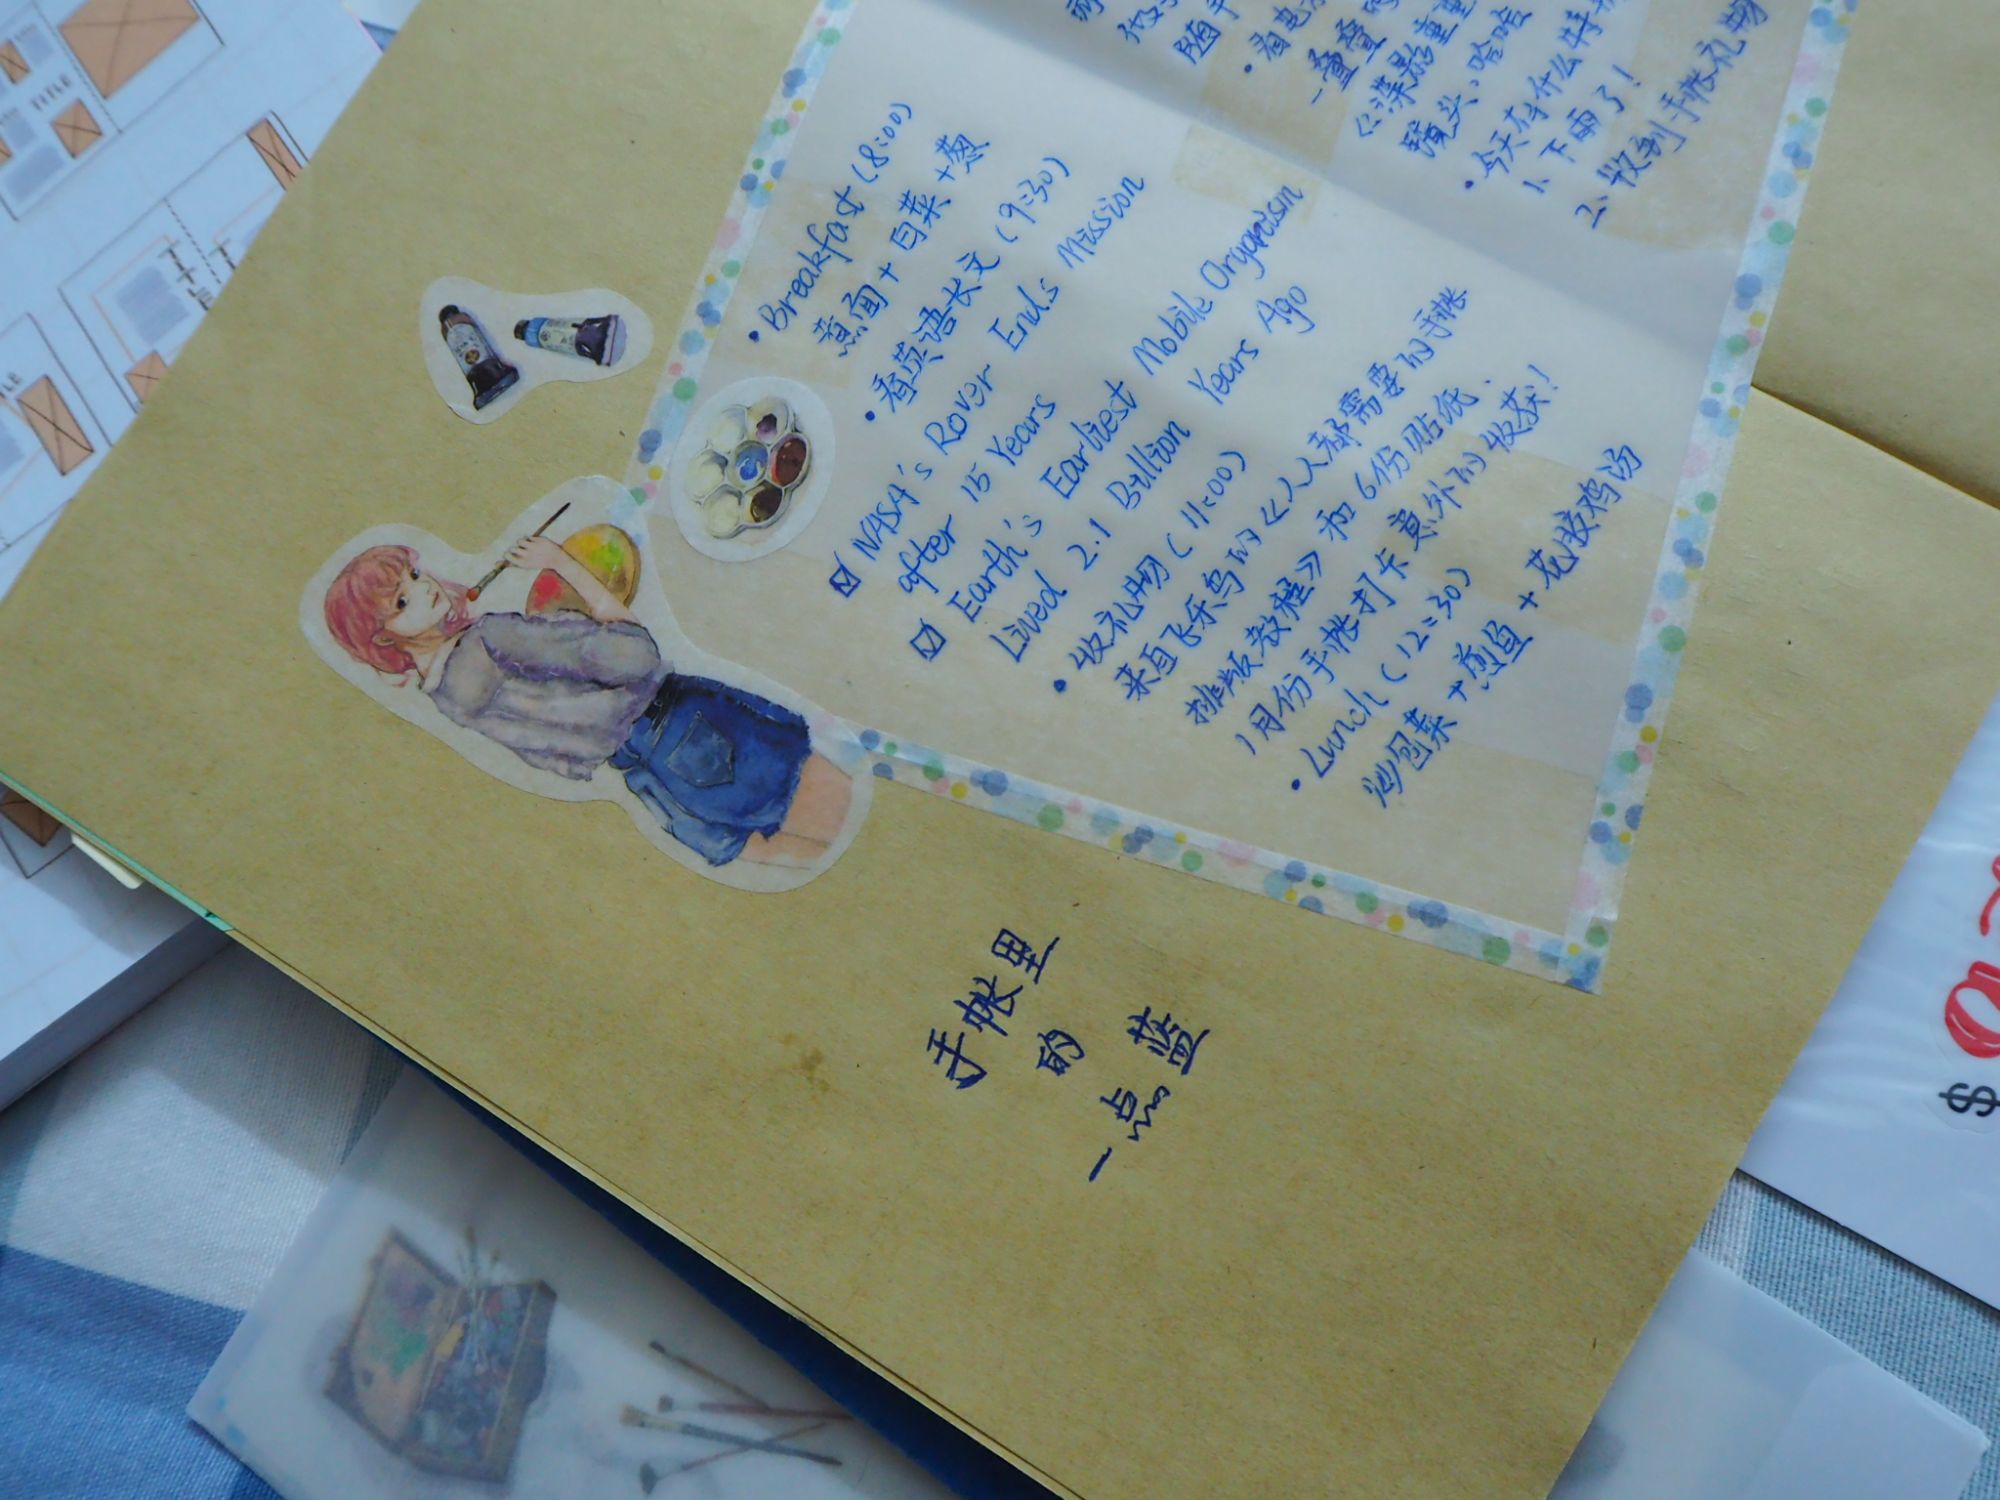 • Breakfast (8:00)
煮面 + 白菜 + 葱
• 看英语长文 (9:30)
NASA's Rover Ends Mission
after 15 Years
Earth's Earliest Mobile Organism
Lived 2.1 Billion Years Ago
• 收礼物 (11:00)
来自飞乐鸟的《人人都需要的手帐
排版教程》和6份贴纸.
1月份手帐打卡意外的收获!
• Lunch (12:30)
炒包菜 + 煎蛋 + 花胶鸡汤
随手
• 看电
一叠叠的
镜头,哈哈
• 今天有什么特
1、下雨了!
2、收到手帐礼物
手帐里
的
一点蓝
TITLE
$